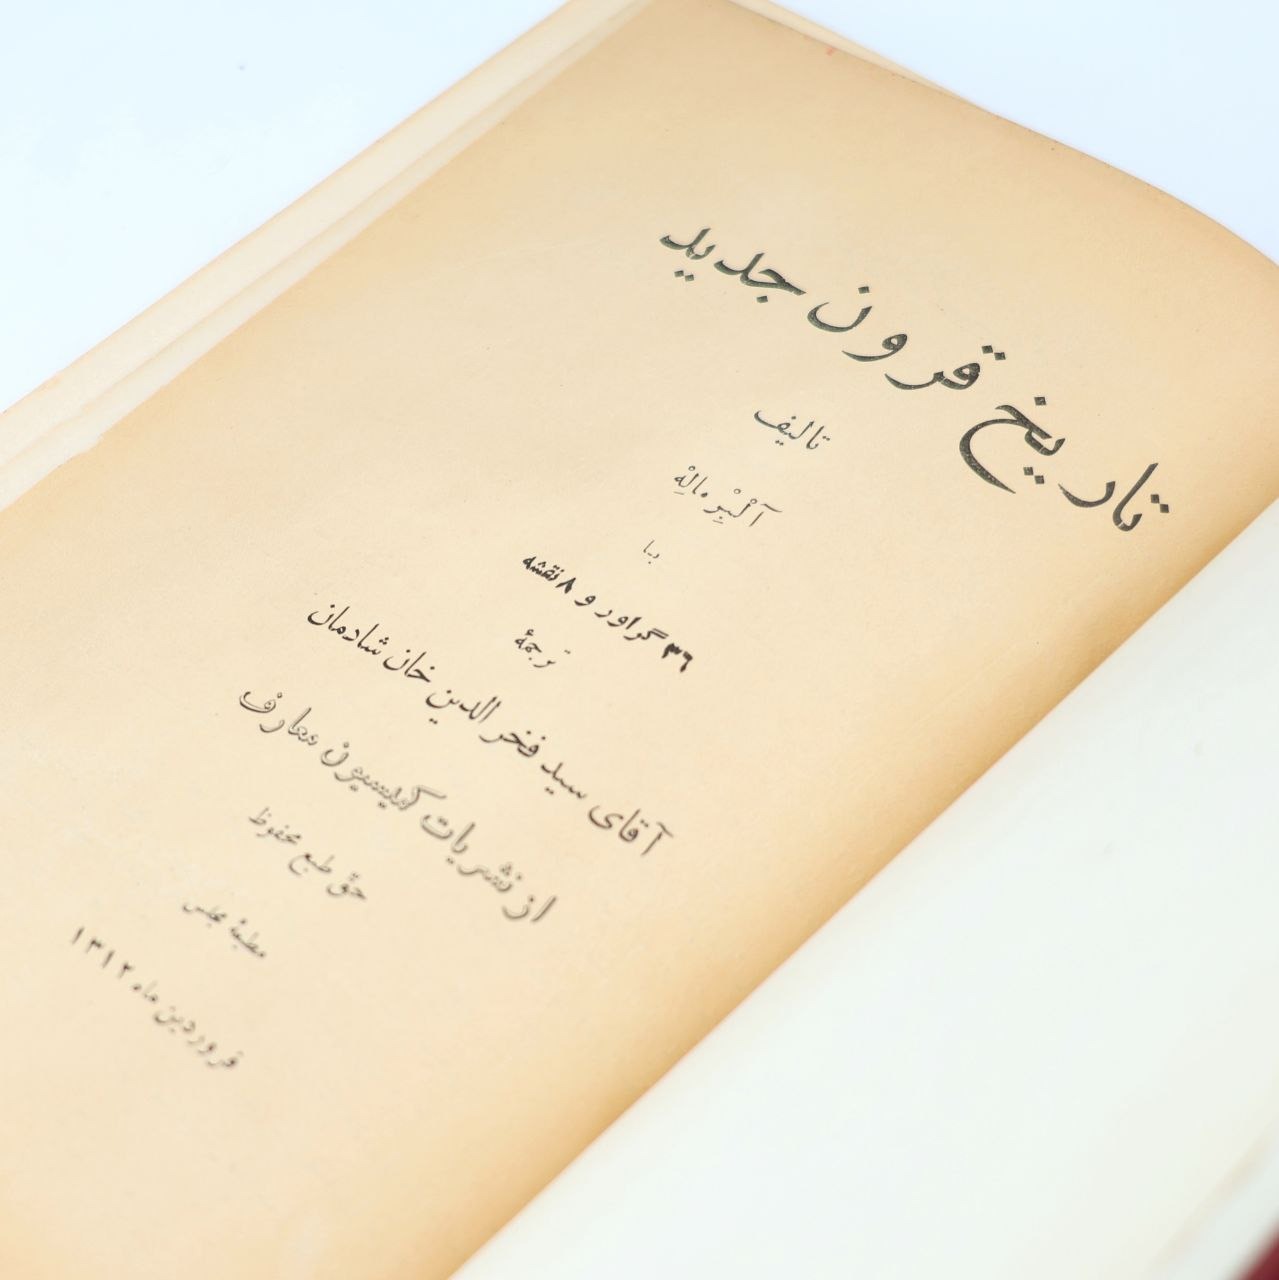 تاریخ قرون جدید
تالیف
آلْبِرْ مالِهْ
با
۳۶ گراور و ۸ نقشه
ترجمهٔ
آقای سید فخرالدین خان شادمان
از نشریات کمیسیون معارف
حق طبع محفوظ
مطبعهٔ مجلس
فروردین ماه ۱۳۱۲